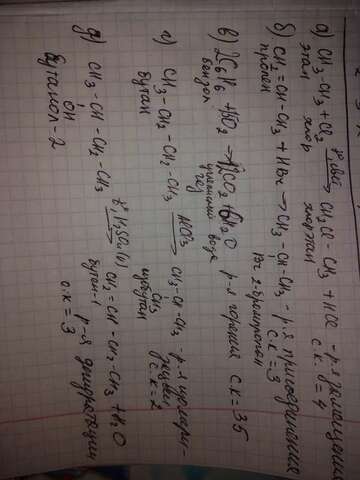 а) CH3-CH3 + Cl2 t°, свет→ CH2Cl-CH3 + HCl - р-я замещения
этан хлор хлорэтан с.к. = 4
б) CH2 = CH-CH3 + HBr → CH3-CH-CH3 - р-я присоединения
пропен Br 2-бромпропан с.к = 3
в) 2C6H6 + 15O2 → 12CO2 + 6H2O р-я горения с.к = 35
бензол углекислый газ вода
г) CH3-CH2-CH2-CH3 AlCl3→ CH3-CH-CH3 - р-я изомеризации
бутан CH3 изобутан с.к = 2
д) CH3-CH-CH2-CH3 t°, H2SO4(к)→ CH2=CH-CH2-CH3 + H2O
OH бутен-1 р-я дегидратации
бутанол-2 с.к = 3